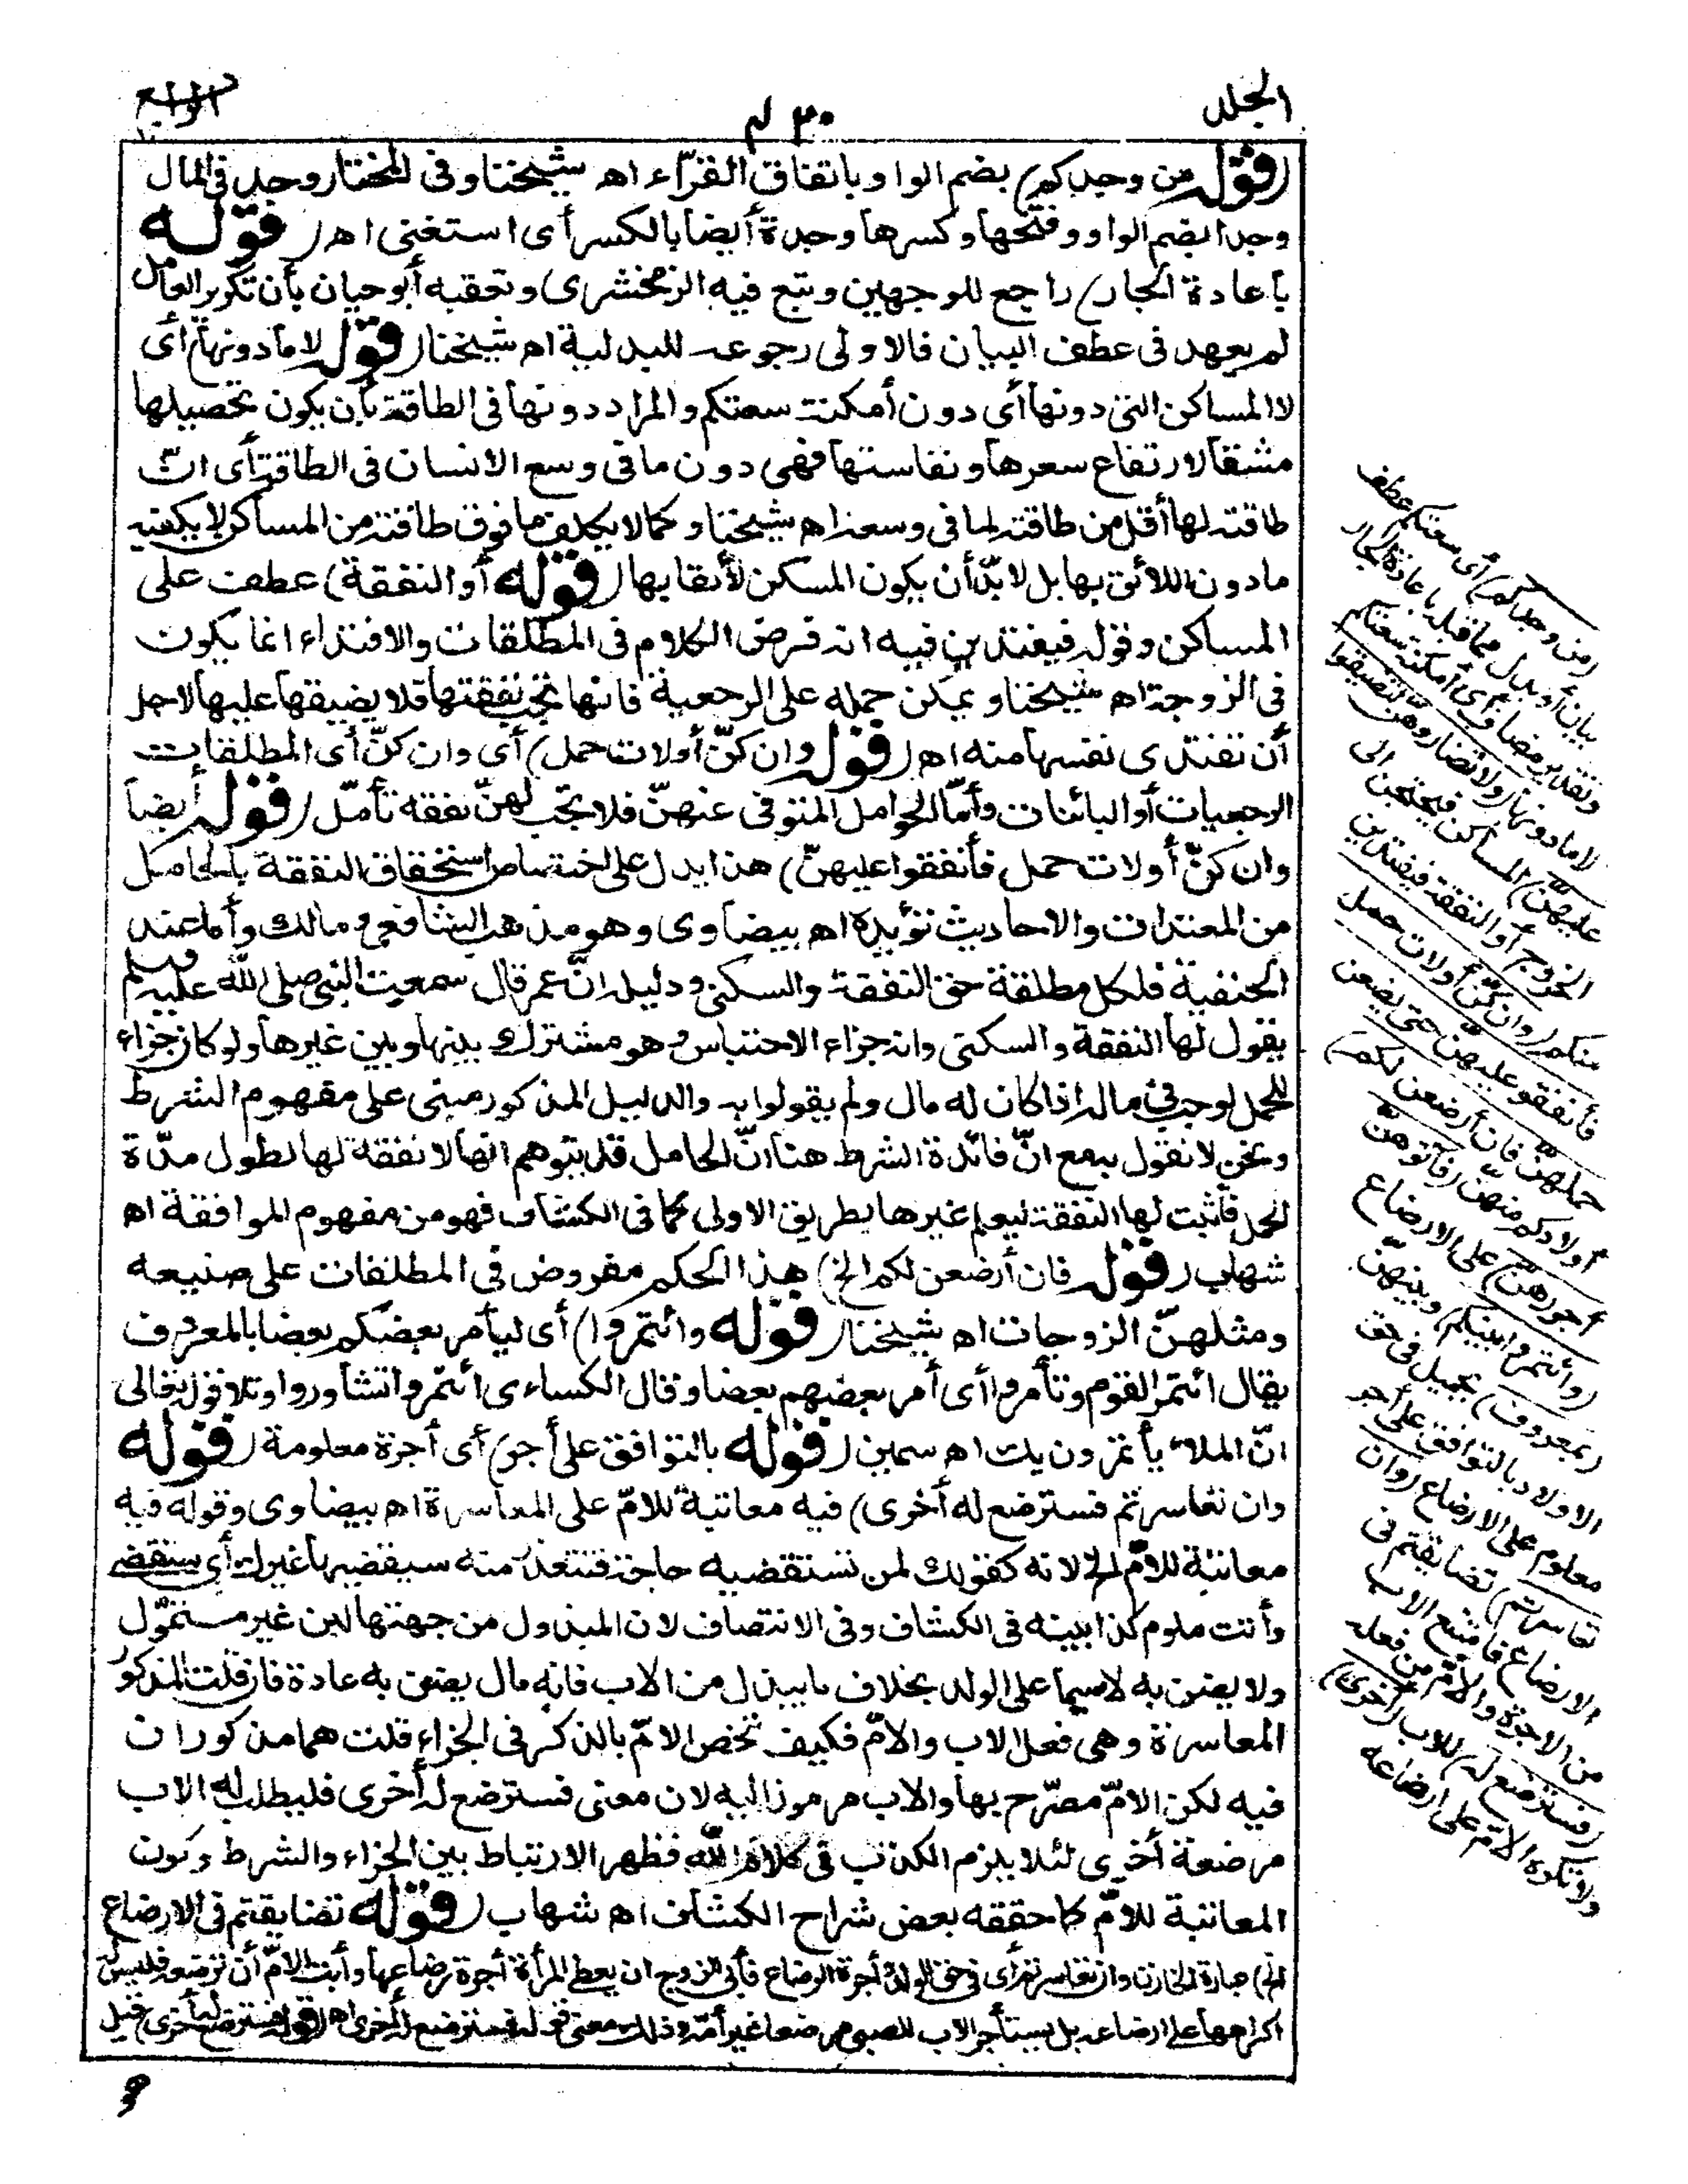 الجلد
٣٠٤
الرابع
(قوله من وجدكم) بضم الواو باتفاق القرّاء اه شيخنا وفى المختار وجد فى المال
وجدا بضم الواو وفتحها وكسرها وجدة أيضا بالكسر أى استغنى اه (قوله
باعادة الجار) راجع للوجهين وتبع فيه الزمخشرى وتعقبه أبوحيان بأن تكرير العامل
لم يعهد فى عطف البيان فالاولى رجوعه للبدلية اه شيخنا (قوله لا مادونها) أى
لا المساكن التى دونها أى دون أمكنة سعتكم والمراد دونها فى الطاقة بأن يكون تحصيلها
مشقا لارتفاع سعرها ونفاستها فهى دون ما فى وسع الانسان فى الطاقة أى انّ
طاقته لها أقل من طاقته لما فى وسعه اه شيخنا وكما لا يكلف ما فوق طاقته من المساكن لا يكفيه
مادون اللائق بها بل لابدّ أن يكون المسكن لائقا بها (قوله أو النفقة) عطف على
المساكن وقوله فيفتدين فيه انه فرض الكلام فى المطلقات والافتداء انما يكون
فى الزوجة اه شيخنا ويمكن حمله على الرجعية فانها تجب نفقتها فلا يضيقها عليها لاجل
أن تفتدى نفسها منه اه (قوله وان كنّ أولات حمل) أى وان كنّ أى المطلقات
الرجعيات أو البائنات وأمّا الحوامل المتوفى عنهنّ فلا تجب لهنّ نفقة تأمّل (قوله أيضا
وان كنّ أولات حمل فأنفقوا عليهنّ) هذا يدل على اختصاص استحقاق النفقة بالحامل
من المعتدات والاحاديث تؤيده اه بيضاوى وهو مذهب الشافعى ومالك وأما عند
الحنفية فلكل مطلقة حق النفقة والسكنى ودليله انّ عمر قال سمعت النبى صلى الله عليه وسلم
يقول لها النفقة والسكنى وانه جزاء الاحتباس وهو مشترك بينها وبين غيرها ولو كان جزاء
للحمل لوجب فى ماله اذا كان له مال ولم يقولوا به والدليل المذكور مبنى على مفهوم الشرط
ونحن لا نقول به مع انّ فائدة الشرط هنا انّ الحامل قد يتوهم انها لا نفقة لها لطول مدّة
الحمل فأثبت لها النفقة ليعلم غيرها بطريق الاولى كما فى الكشاف فهو من مفهوم الموافقة اه
شهاب (قوله فان أرضعن لكم الخ) هذا الحكم مفروض فى المطلقات على صنيعه
ومثلهنّ الزوجات اه شيخنا (قوله وائتمروا) أى ليأمر بعضكم بعضا بالمعروف
يقال ائتمر القوم وتأمروا أى أمر بعضهم بعضا وقال الكساءى ائتمروا تشاوروا وتلا قوله تعالى
انّ الملاء يأتمرون بك اه سمين (قوله بالتوافق على أجر) أى أجرة معلومة (قوله
وان تعاسرتم فسترضع له أخرى) فيه معاتبة للامّ على المعاسرة اه بيضاوى وقوله فيه
معاتبة للامّ الخ لانه كقولك لمن تستقضيه حاجة فتتعذر منه سيقضيها غيرك أى ستقضى
وأنت ملوم كذا بينه فى الكشاف وفى الانتصاف لان المبذول من جهتها لبن غير متموّل
ولا يضن به لاسيما على الولد بخلاف ما يبذل من الاب فانه مال يضن به عادة فان قلت المذكور
المعاسرة وهى فعل الاب والامّ فكيف تخص الامّ بالذكر فى الجزاء قلت هما مذكوران
فيه لكن الامّ مصرّح بها والاب مرموز اليه لان معنى فسترضع له أخرى فليطلب له الاب
مرضعة أخرى لئلا يلزم الكذب فى كلام الله فظهر الارتباط بين الجزاء والشرط وكون
المعاتبة للامّ كما حققه بعض شراح الكشاف اه شهاب (قوله تضايقتم فى الارضاع
الخ) عبارة الخازن وان تعاسرتم أى فى حق الولد أجرة الرضاع فأبى الزوج ان يعطى المرأة أجرة رضاعها وأبت الامّ أن ترضعه فليس له
اكراهها على ارضاعه بل يستأجر الاب للصبى مرضعا غير أمّه وذلك معنى قوله فسترضع له أخرى اه (قوله فسترضع له أخرى) قيل
(من وجدكم) أى سعتكم عطف
بيان أو بدل مما قبله باعادة الجار
وتقدير مضاف أى أمكنة سعتكم
لا مادونها (ولا تضاروهنّ لتضيقوا
عليهنّ) المساكن فيحتجن الى
الخروج أو النفقة فيفتدين
منكم (وان كنّ أولات حمل
فأنفقوا عليهنّ حتى يضعن
حملهنّ فان أرضعن لكم)
أولادكم منهنّ (فآتوهنّ
أجورهنّ) على الارضاع
(وائتمروا بينكم) وبينهنّ
(بمعروف) بجميل فى حق
الاولاد بالتوافق على أجر
معلوم على الارضاع (وان
تعاسرتم) تضايقتم فى
الارضاع فامتنع الاب
من الاجرة والامّ من فعله
(فسترضع له) للاب (أخرى)
ولا تكره الامّ على ارضاعه